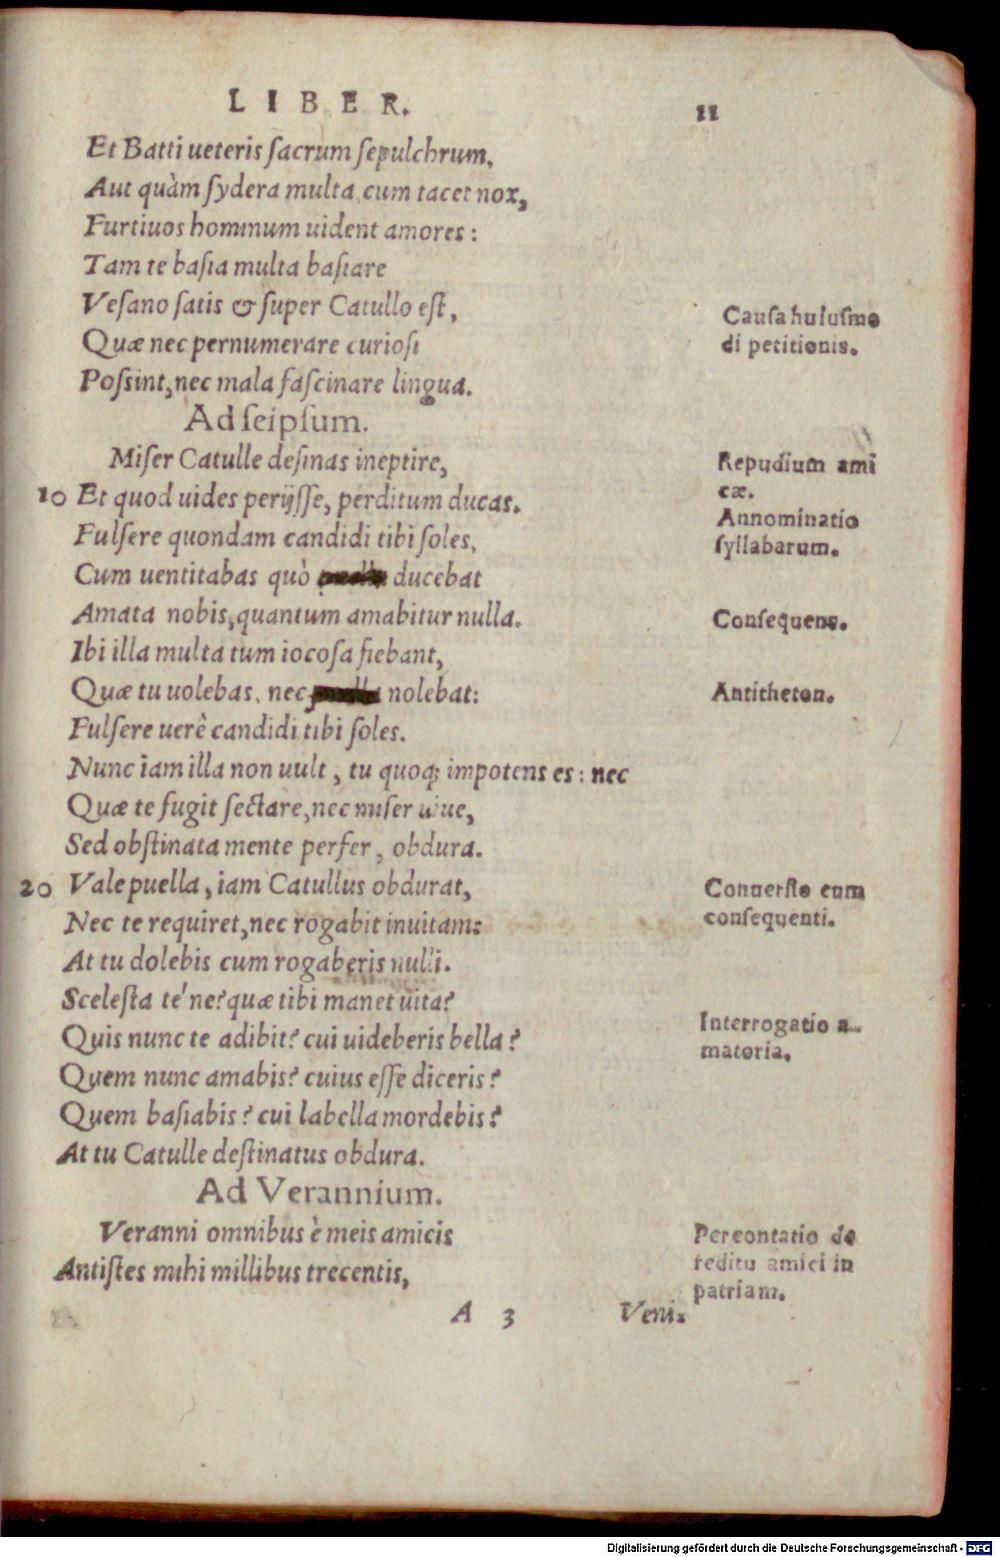 LIBER. 11
Et Batti ueteris sacrum sepulchrum,
Aut quàm sydera multa, cum tacet nox,
Furtiuos hominum uident amores:
Tam te basia multa basiare
Vesano satis & super Catullo est,
Quæ nec pernumerare curiosi
Possint, nec mala fascinare lingua.
Causa huiusmo
di petitionis.
Ad seipsum.
Miser Catulle desinas ineptire,
10 Et quod uides perijsse, perditum ducas.
Fulsere quondam candidi tibi soles,
Cum uentitabas quò ducebat
Amata nobis, quantum amabitur nulla.
Ibi illa multa tum iocosa fiebant,
Quæ tu uolebas, nec nolebat:
Fulsere uerê candidi tibi soles.
Nunc iam illa non uult, tu quoq; impotens es: nec
Quæ te fugit sectare, nec miser uiue,
Sed obstinata mente perfer, obdura.
20 Vale puella, iam Catullus obdurat,
Nec te requiret, nec rogabit inuitam:
At tu dolebis cum rogaberis nulli.
Scelesta te'ne? quæ tibi manet uita?
Quis nunc te adibit? cui uideberis bella?
Quem nunc amabis? cuius esse diceris?
Quem basiabis? cui labella mordebis?
At tu Catulle destinatus obdura.
Repudium ami
cæ.
Annominatio
syllabarum.
Consequens.
Antitheton.
Conuersio cum
consequenti.
Interrogatio a-
matoria.
Ad Verannium.
Veranni omnibus è meis amicis
Antistes mihi millibus trecentis,
Percontatio de
reditu amici in
patriam.
A 3 Veni-
Digitalisierung gefördert durch die Deutsche Forschungsgemeinschaft - DFG